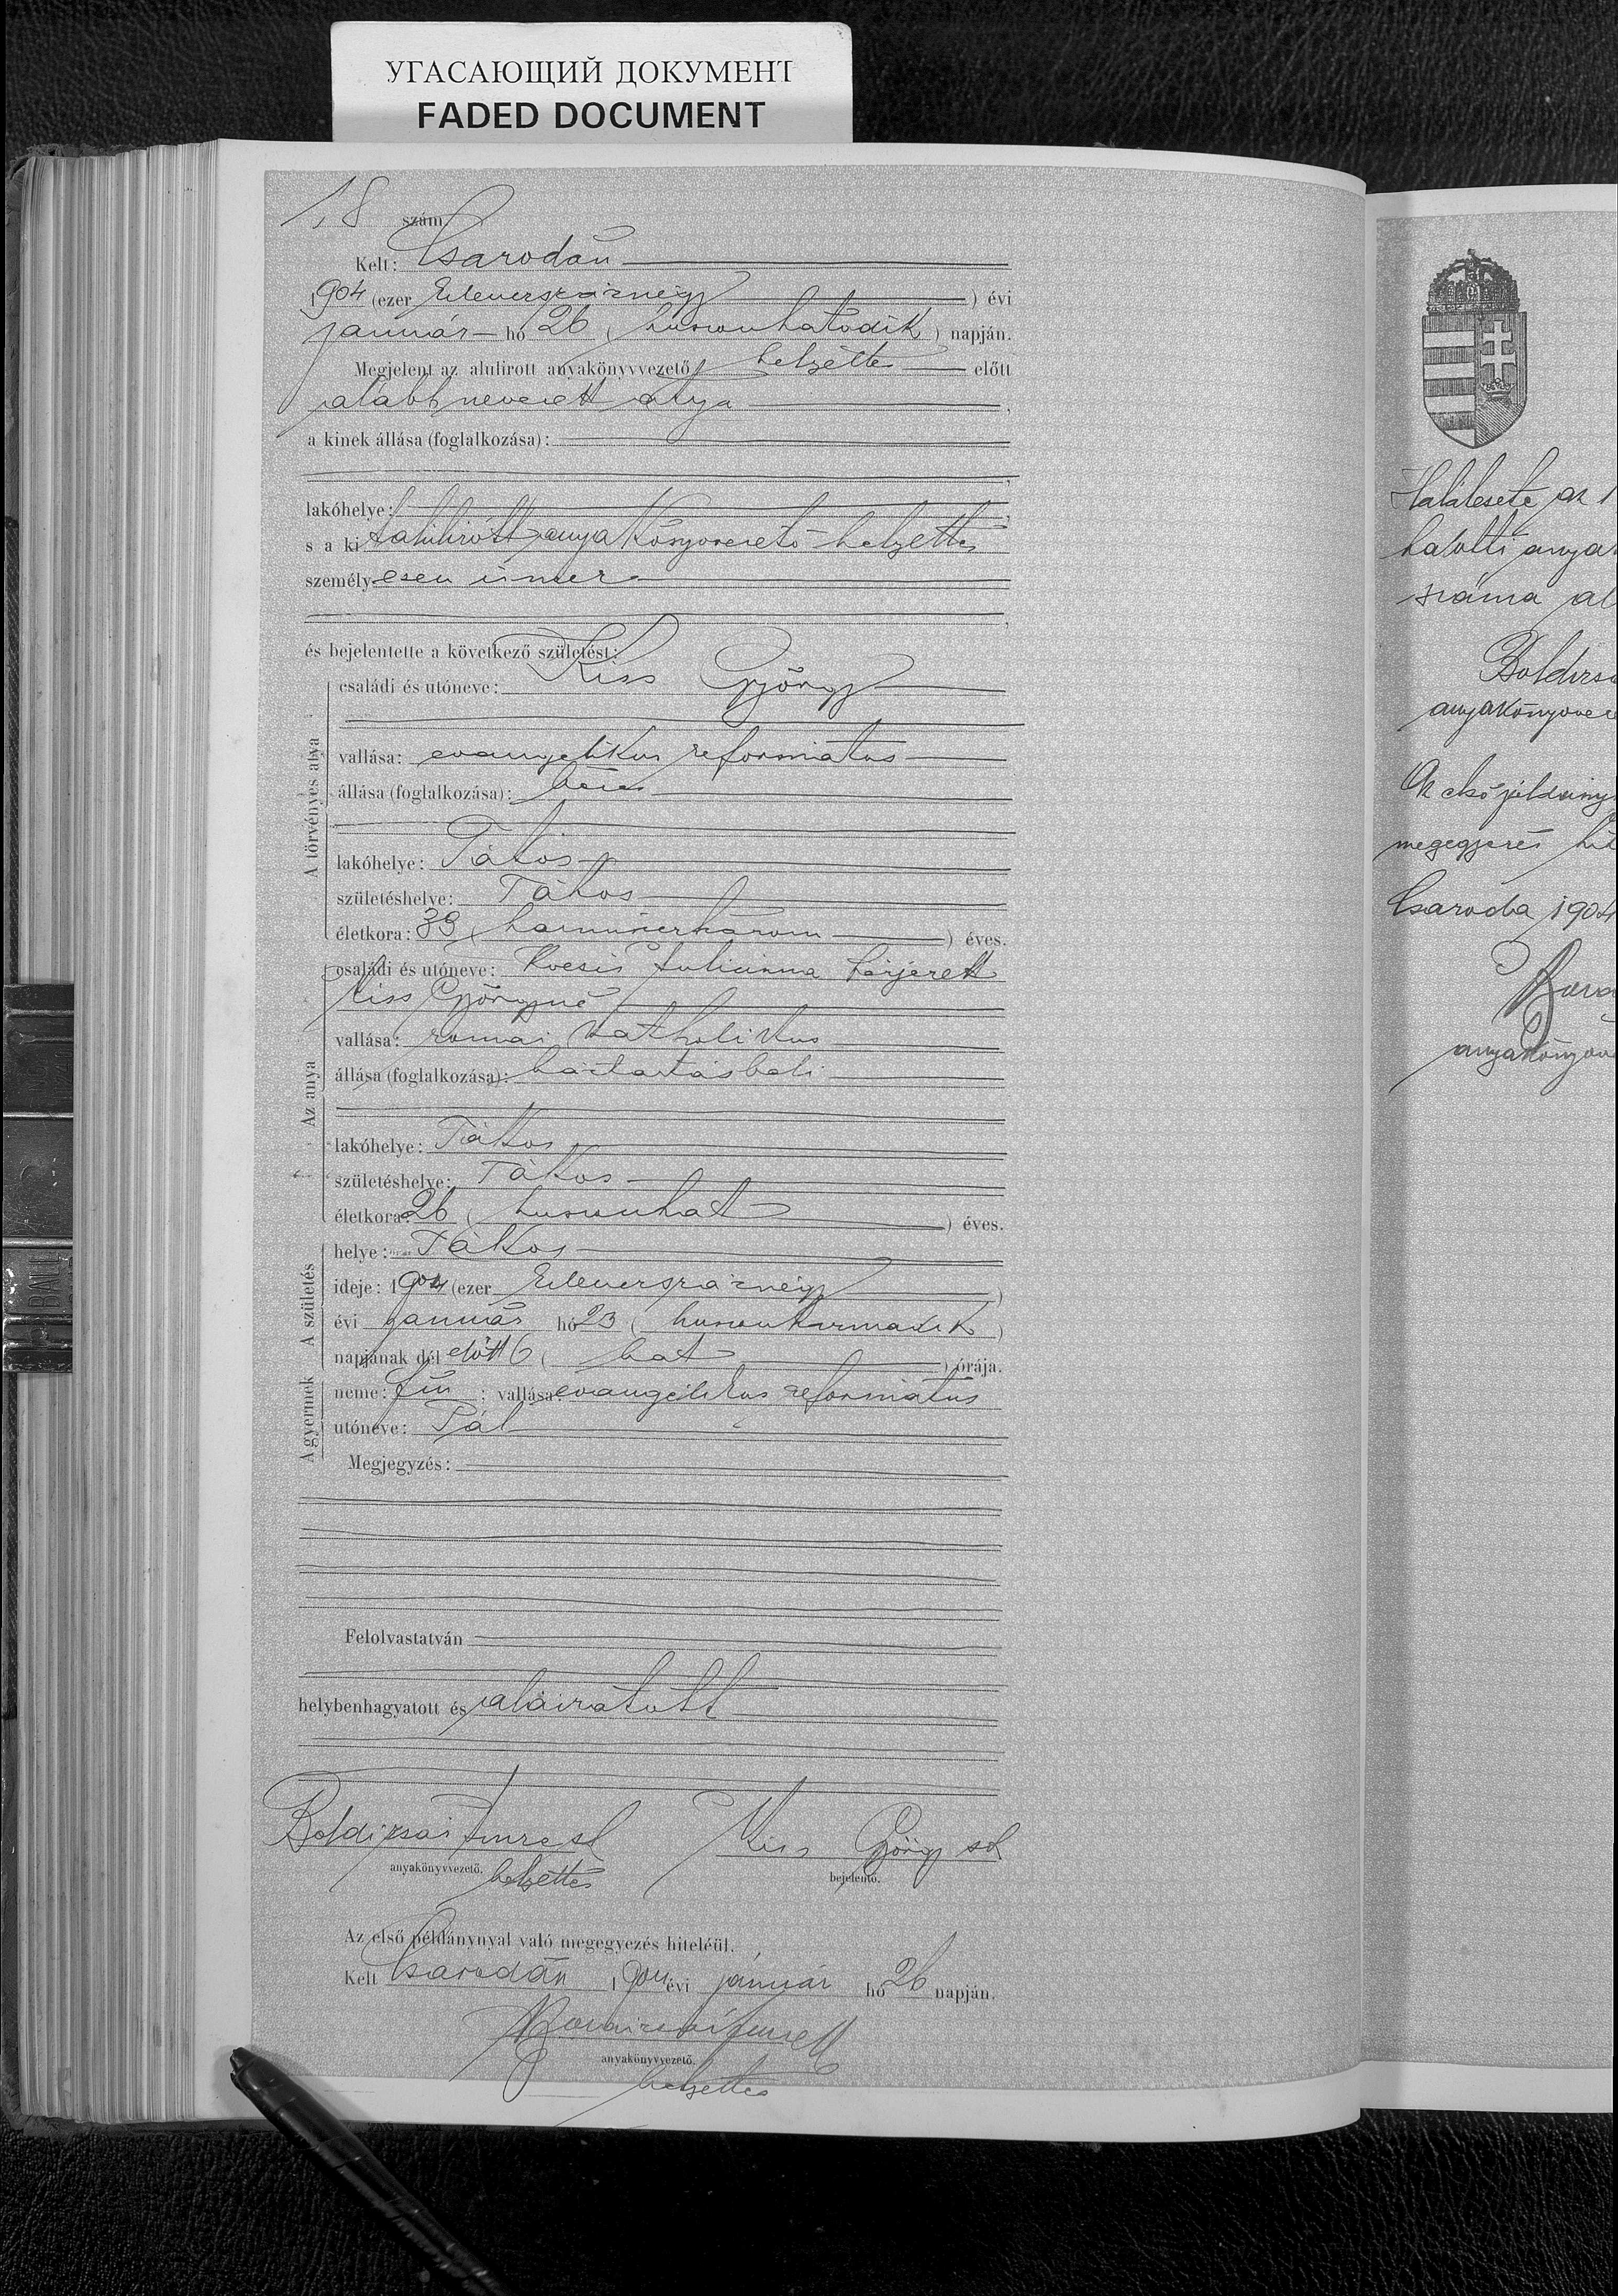 УГАСАЮЩИЙ ДОКУМЕНТ
FADED DOCUMENT
18 szám.
Kelt: Csarodán
1904 (ezer kilencszáznégy) évi
január hó 26 (huszonhatodik) napján.
Megjelent az alulirott anyakönyvvezető helyettes előtt
alább nevezett atya,
a kinek állása (foglalkozása):
lakóhelye:
s a kit alulirótt anyakönyvvezető helyettes
személyesen ismer
és bejelentette a következő születést:
A törvényes atya
családi és utóneve: Kiss György
vallása: evangelikus református
állása (foglalkozása): béres
lakóhelye: Tákos
születéshelye: Tákos
életkora: 33 (harminczhárom) éves.
Az anya
családi és utóneve: Kocsis Julianna férjezett
Kiss Györgyné
vallása: romai katholikus
állása (foglalkozása): háztartásbeli
lakóhelye: Tákos
születéshelye: Tákos
életkora: 26 (huszonhat) éves.
A születés
helye: Tákos
ideje: 1904 (ezer kilencszáznégy)
évi január hó 23 (huszonharmadik)
napjának dél előtt 6 (hat) órája.
A gyermek
neme: fiú; vallása: evangélikus református
utóneve: Pál
Megjegyzés:
Felolvastatván
helybenhagyatott és aláiratott
Boldizsár Imre sk Kiss György sk
anyakönyvvezető. helyettes bejelentő.
Az első példánynyal való megegyezés hiteléül.
Kelt Csarodán 1904 évi január hó 26 napján.
anyakönyvvezető.
helyettes
Halálesete az 1
halotti anya
száma al
anyakönyvve
Az első példány
megegyezés hit
Csaroda 1904
anyakönyvv